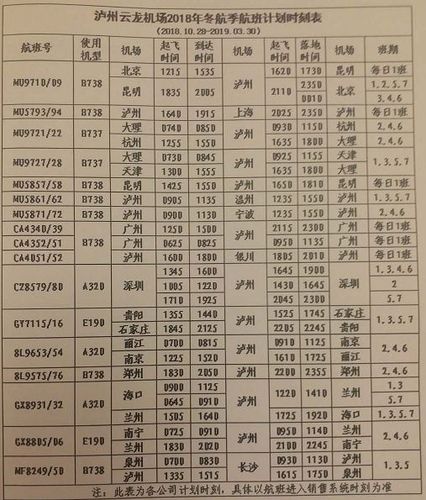 泸州云龙机场2018年冬航季航班计划时刻表
(2018.10.28-2019.03.30)
航班号 使用机型 机场 起飞时间 到达时间 机场 起飞时间 落地时间 机场 班期
MU9710/09 B738 北京 1215 1535 泸州 1620 1730 昆明 每日1班
昆明 1835 2005 2110 2350 北京 1.2.5.7
0010 3.4.6
MU5793/94 B738 泸州 1640 1915 上海 2025 2350 泸州 每日1班
MU9721/22 B737 大理 0740 0850 泸州 0930 1150 杭州 2.4.6
杭州 1255 1550 1635 1800 大理
MU9727/28 B737 大理 0730 0845 泸州 0925 1155 天津 1.3.5.7
天津 1300 1555 1635 1800 大理
MU5857/58 B738 昆明 1425 1550 泸州 1650 1810 昆明 每日1班
MU5861/62 B738 泸州 0905 1135 温州 1235 1550 泸州 1.3.5.7
MU5871/72 B738 泸州 0900 1130 宁波 1235 1550 泸州 2.4.6
CA4340/39 B738 广州 1250 1500 泸州 2115 2300 广州 每日1班
CA4352/51 广州 0625 0825 0950 1135 广州 每日1班
CA4051/52 泸州 1600 1800 银川 1805 2010 泸州 每日1班
CZ8579/80 A320 深圳 1345 1600 泸州 1645 1900 深圳 1.3.4.6
1005 1220 1430 1645 2
1710 1925 2045 2300 5.7
GY7115/16 E190 贵阳 1355 1440 泸州 1525 1745 石家庄 1.3.5.7
石家庄 1845 2125 2205 2245 贵阳
8L9653/54 A320 丽江 0700 0815 泸州 0910 1125 南京 2.4.6
南京 1225 1520 1610 1725 丽江
8L9575/76 B738 郑州 1830 2050 泸州 2200 2355 郑州 2.4.6
GX8931/32 A320 海口 0900 1125 泸州 1220 1410 兰州 1.3
0645 0910 5.7
兰州 1505 1640 1725 1920 海口 1.3.5.7
GX8805/06 E190 南宁 0725 0910 泸州 0950 1140 兰州 2.4.6
兰州 1830 2020 2100 2245 南宁
MF8249/50 B738 泉州 0700 0830 长沙 0930 1130 泸州 1.3.5
泸州 1335 1515 1615 1750 泉州
注：此表为各公司计划时刻，具体以航班进入销售系统时刻为准